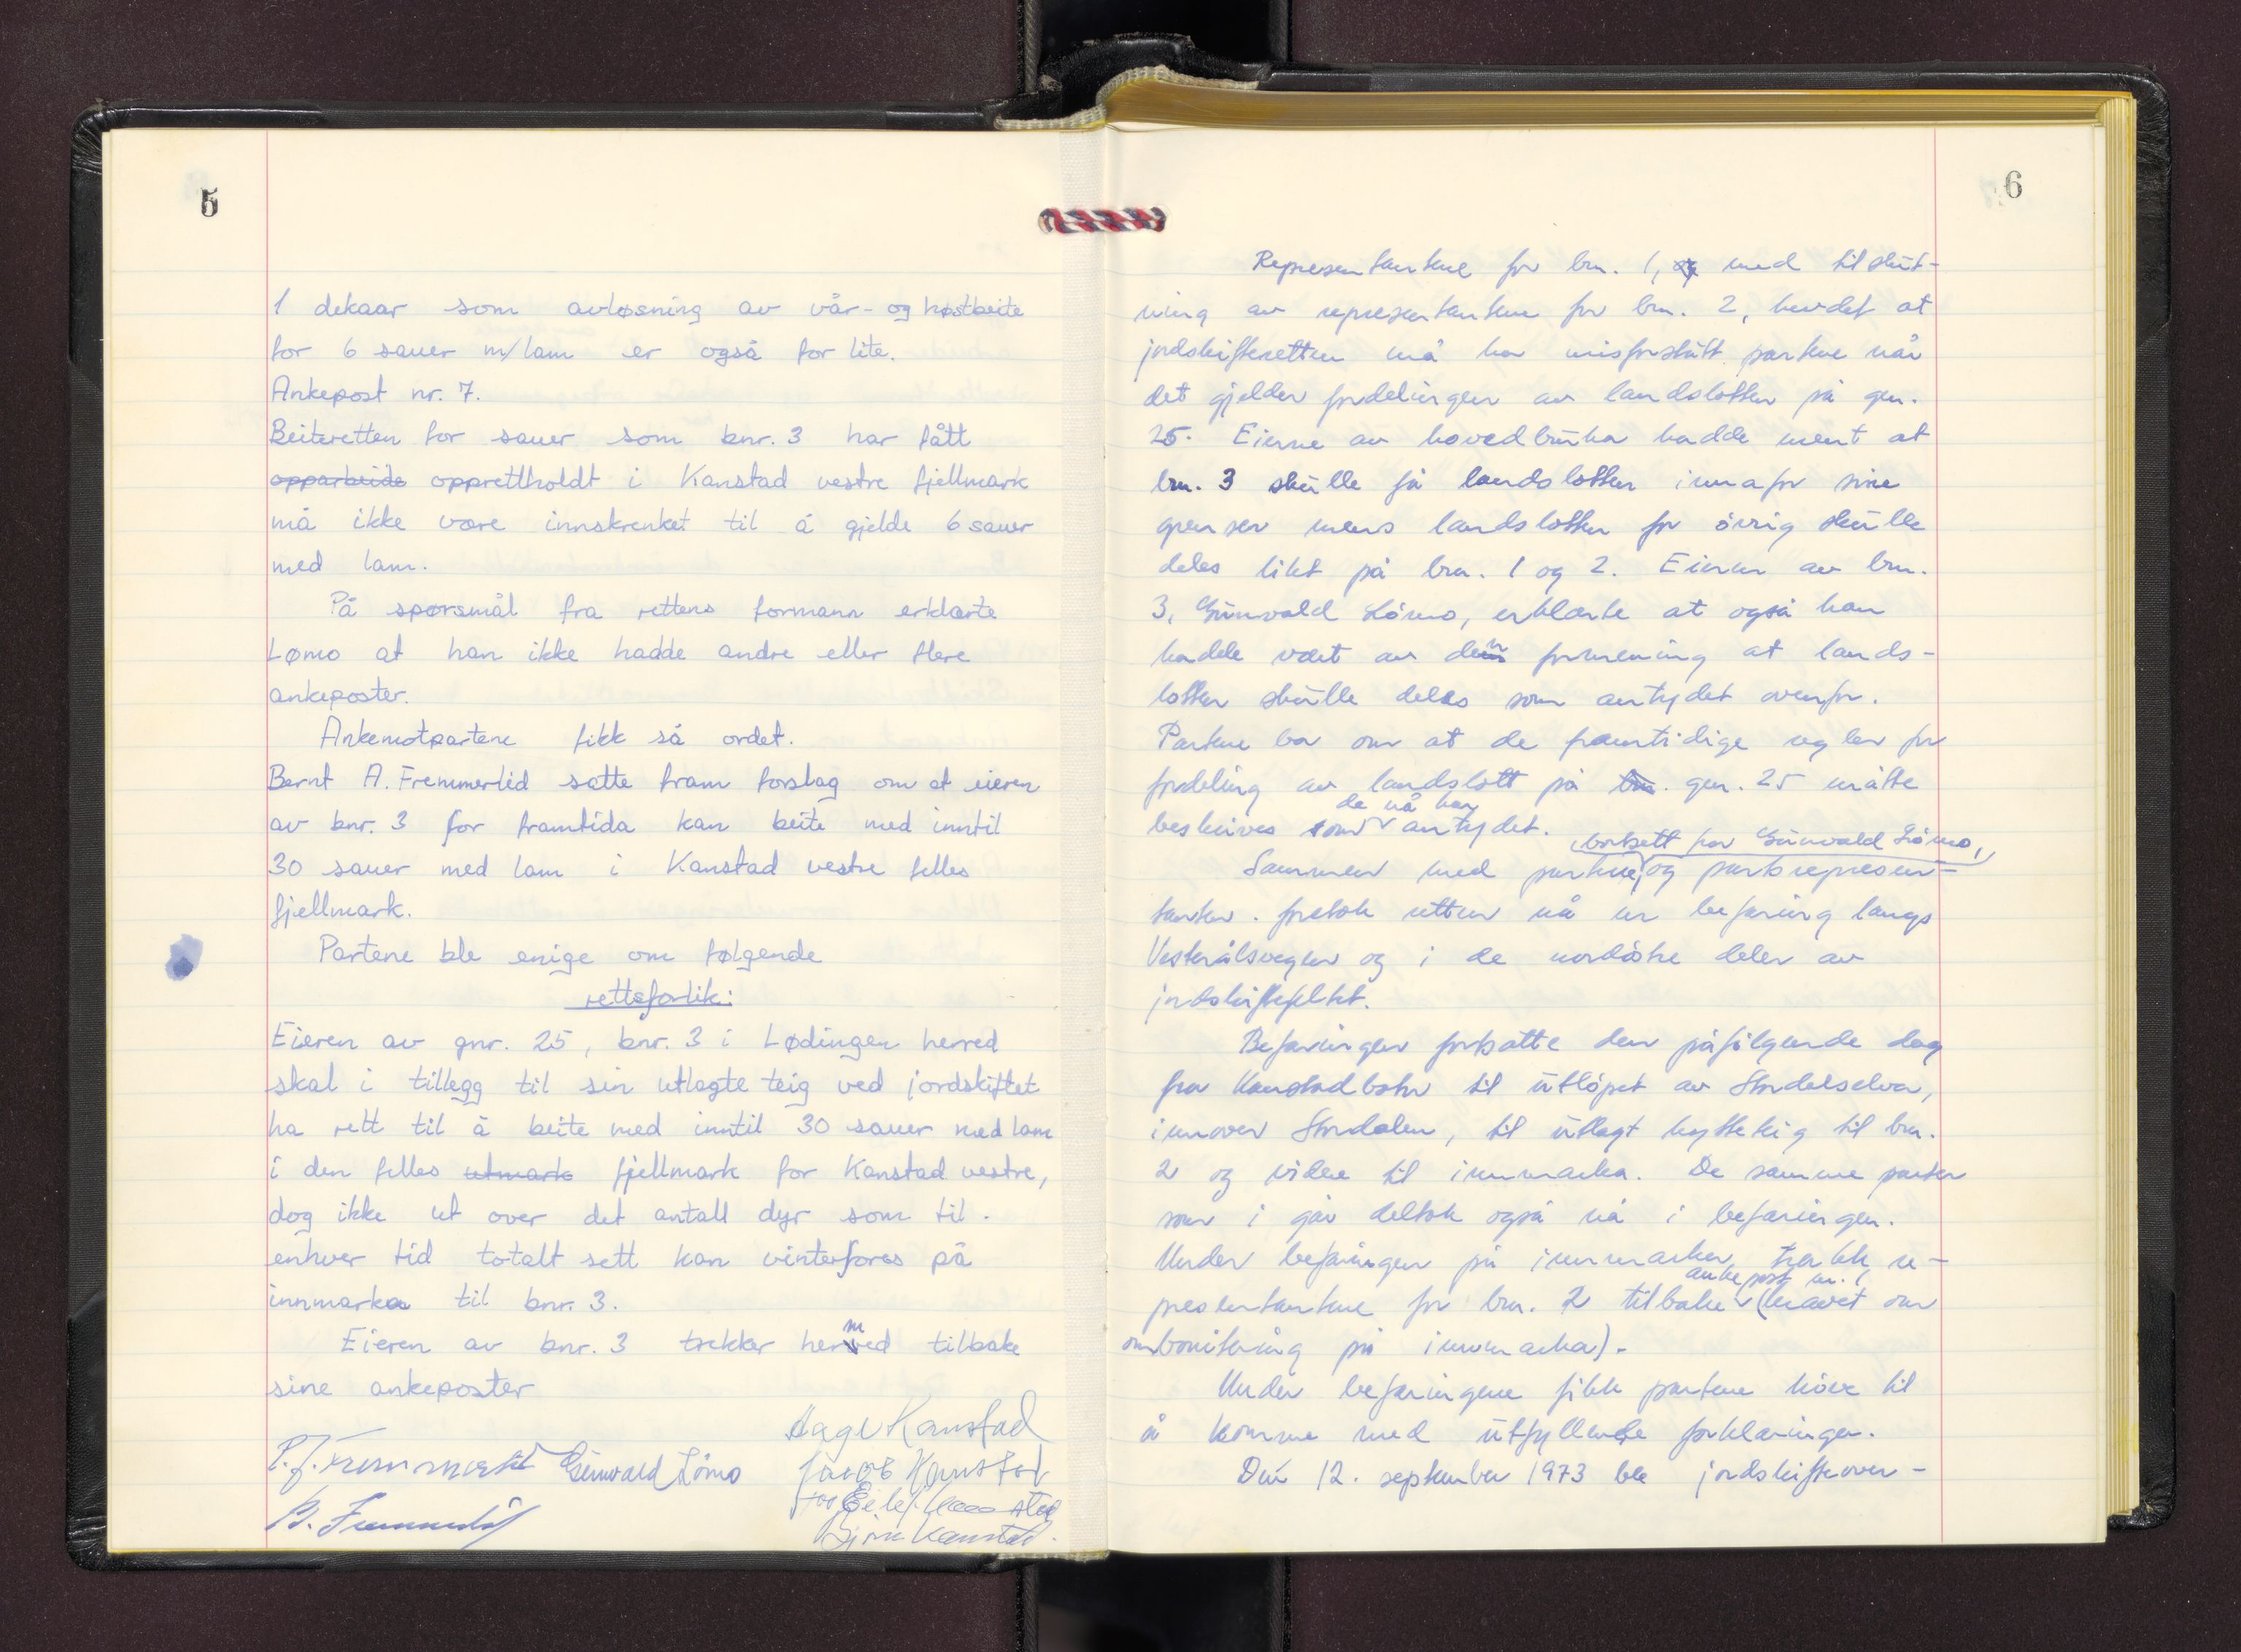 5
1 dekaar som avløsning av vår- og høstbeite
for 6 sauer m/lam er også for lite.
Ankepost nr. 7.
Beiteretten for sauer som bnr. 3 har fått
opparbeide opprettholdt i Kanstad vestre fjellmark
må ikke være innskrenket til å gjelde 6 sauer
med lam.
På spørsmål fra rettens formann erklærte
Lømo at han ikke hadde andre eller flere
ankeposter.
Ankemotpartene fikk så ordet.
Bernt A. Fremmerlid satte fram forslag om at eieren
av bnr. 3 for framtida kan beite med inntil
30 sauer med lam i Kanstad vestre felles
fjellmark.
Partene ble enige om følgende
rettsforlik:
Eieren av gnr. 25, bnr. 3 i Lødingen herred
skal i tillegg til sin utlagte teig ved jordskiftet
ha rett til å beite med inntil 30 sauer med lam
i den felles utmark fjellmark for Kanstad vestre,
dog ikke ut over det antall dyr som til-
enhver tid totalt sett kan vinterfores på
innmarka til bnr. 3.
Eieren av bnr. 3 trekker hermed tilbake
sine ankeposter
Aage Kanstad
Gunvald Lömo Jacob Kanstad
for Eilef Kanstad
B. Fremmerlid Bjørn Kanstad.
6
Representantene for bnr. 1, og med tilslut-
ning av representantene for bnr. 2, hevdet at
jordskifteretten må ha misforstått partene når
det gjelder fordelingen av landslotten på gnr.
25. Eierne av hovedbruka hadde ment at
bnr. 3 skulle få landslotten innafor sine
grenser mens landslotten for övrig skulle
deles likt på bnr. 1 og 2. Eieren av bnr.
3, Gunvald Lömo, erklærte at også han
hadde vært av den formening at lands-
lotten skulle deles som antydet ovenfor.
Partene ba om at de framtidige regler for
fordeling av landslott på bnr. gnr. 25 måtte
beskrives som de nå har antydet.
Sammen med partene, bortsett fra Gunvald Lömo, og partsrepresen-
tanter. foretok retten nå en befaring langs
Vesterålsvegen og i de nordöstre deler av
jordskiftefeltet.
Befaringen fortsatte den påfölgende dag
fra Kanstadbotn til utlöpet av Stordalselva,
innover Stordalen, til utlagt hytteteig til bnr.
2 og videre til innmarka. De samme parter
som i går deltok også nå i befaringen.
Under befaringen på innmarka trakk re-
presentantene for bnr. 2 tilbake ankepost nr. 1 (kravet om
ombonitering på innmarka).
Under befaringene fikk partene höve til
å komme med utfyllende forklaringer.
Den 12. september 1973 ble jordskifteover-